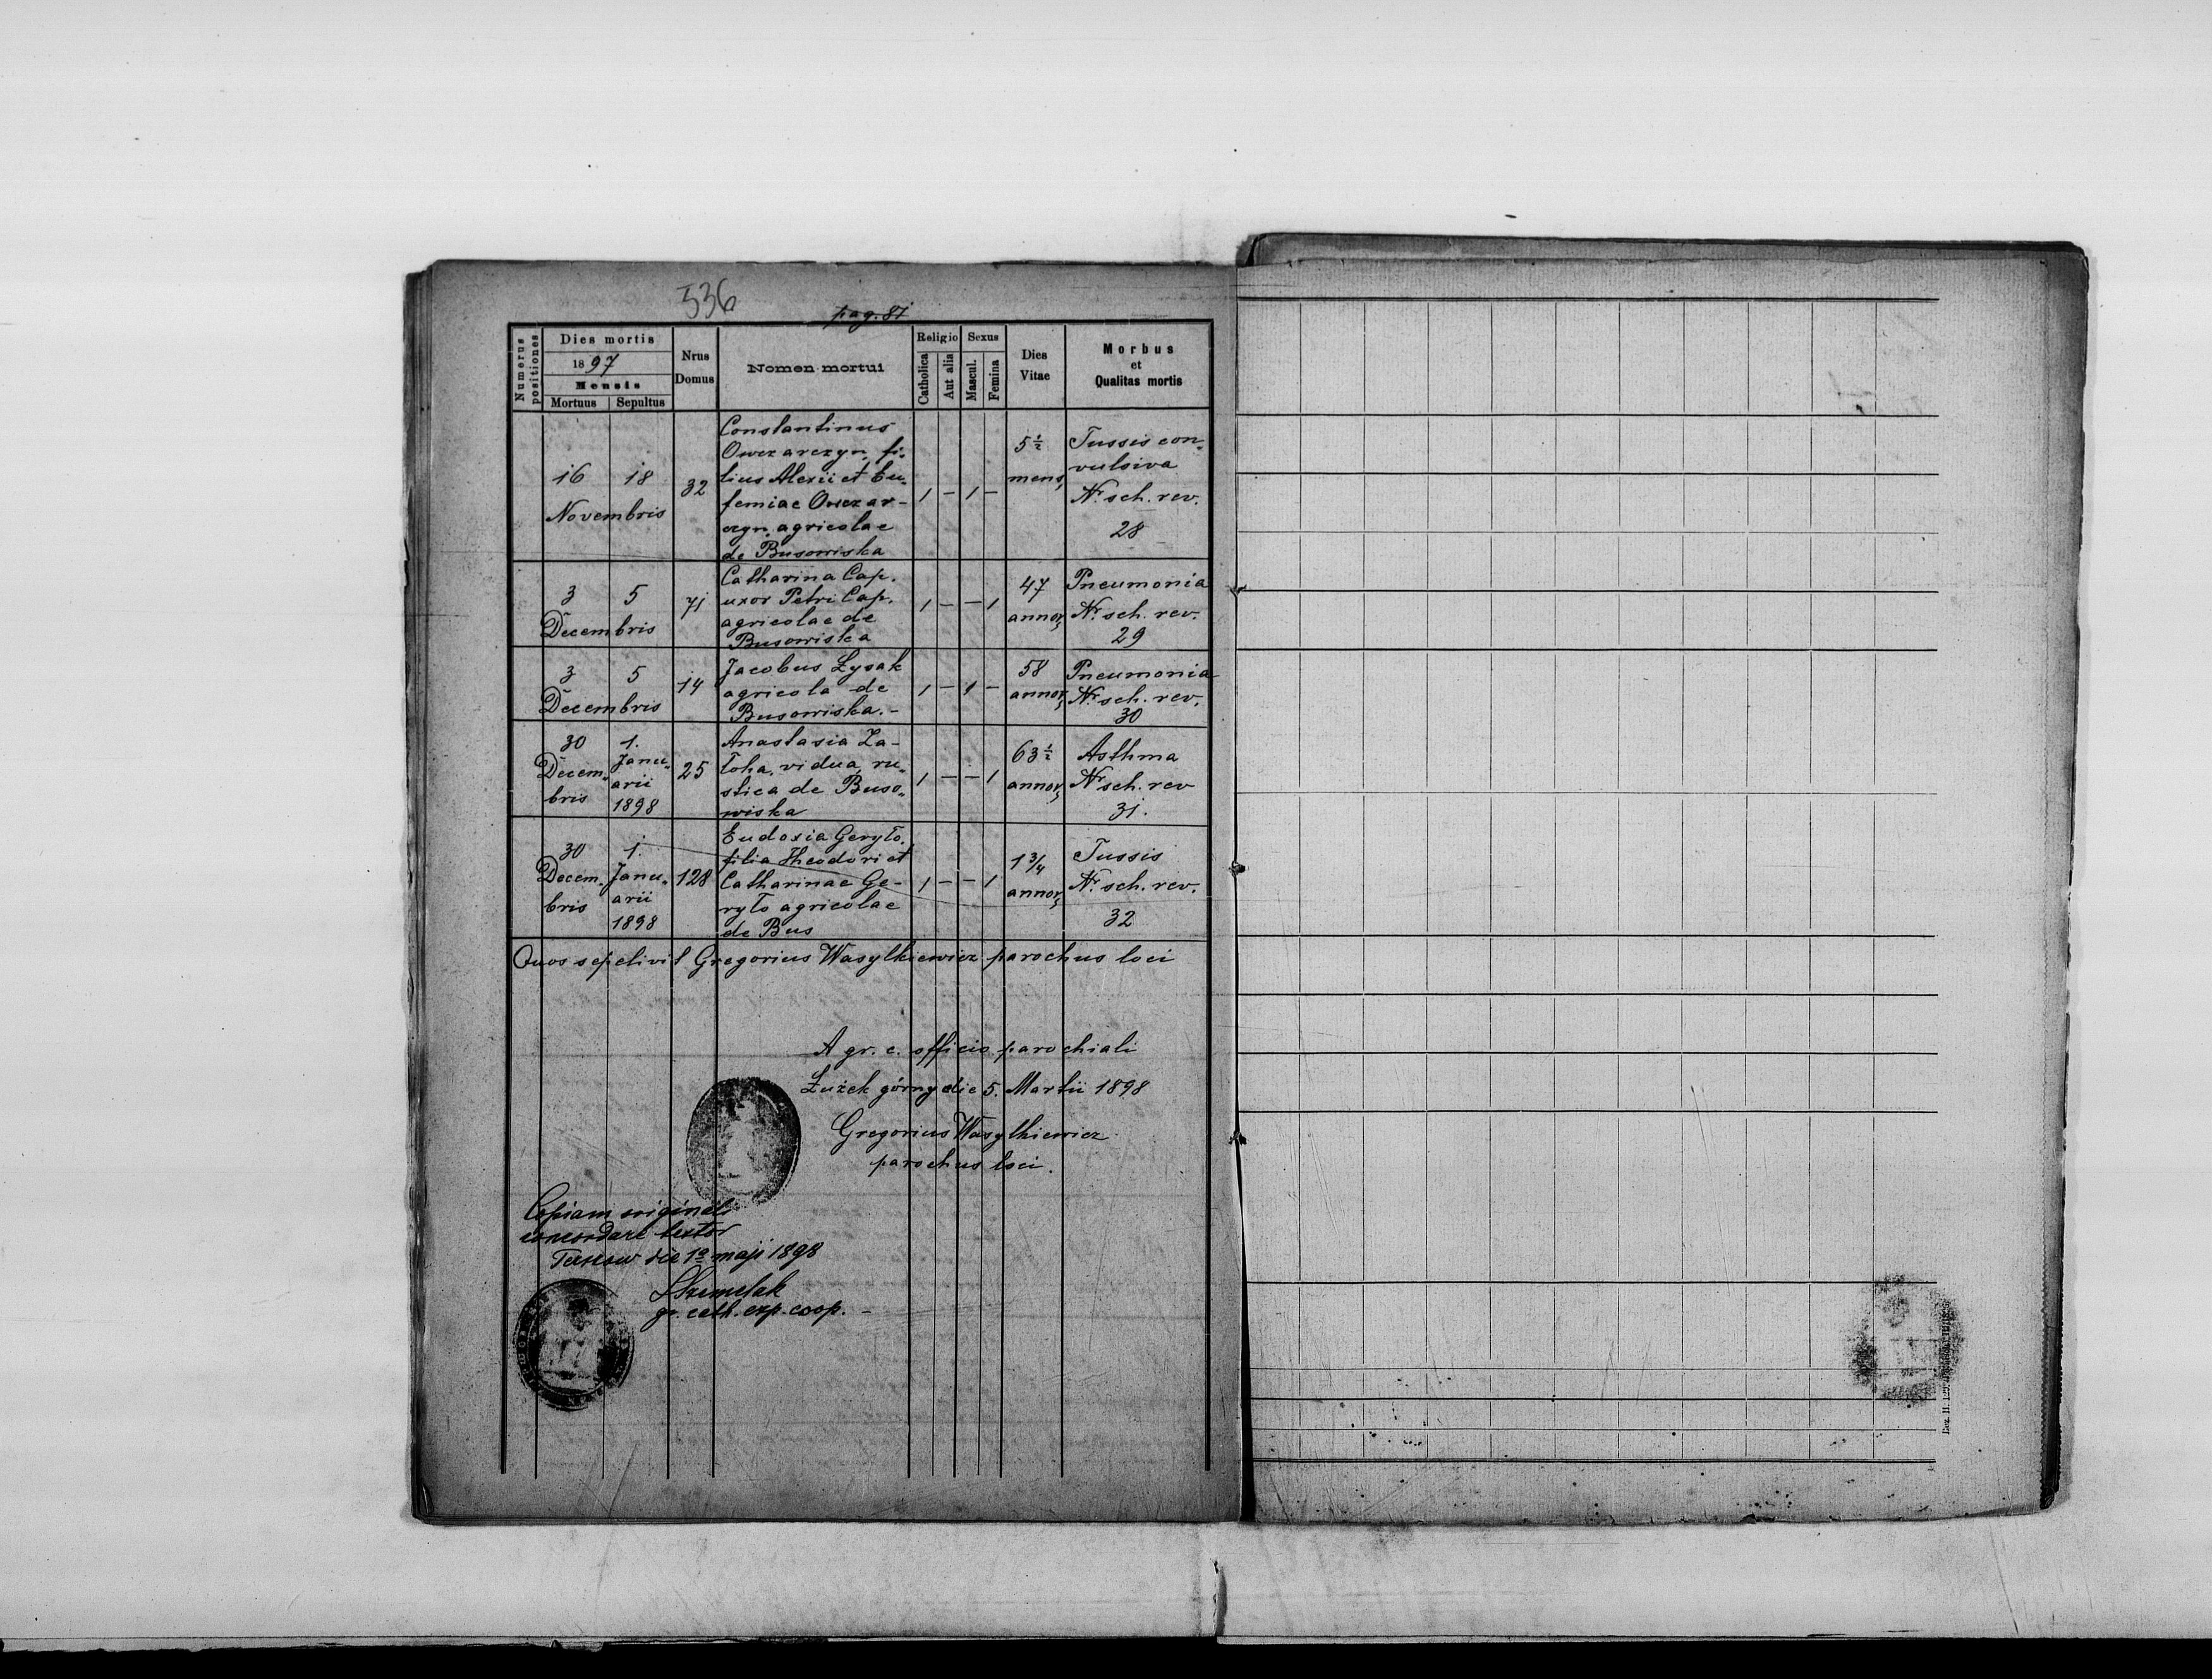 336
pag. 81
Numerus positiones
Dies mortis
1897
Mensis
Mortuus Sepultus
Nrus Domus
Nomen mortui
Religio
Catholica
Aut alia
Sexus
Mascul.
Femina
Dies Vitae
Morbus
et
Qualitas mortis
16 18
Novembris
32
Constantinus
Owczarczyn, fi-
lius Alexii et Eu-
femiae Owczar-
czyn, agricolae
de Busowiska
1 - 1 -
5 1/2
mens,
Tussis con-
vulsiva
Nr. sch. rev.
28
3 5
Decembris
71
Catharina Cap.
uxor Petri Cap.
agricolae de
Busowiska
1 - - 1
47
annor,
Pneumonia
Nr. sch. rev.
29
3 5
Decembris
14
Jacobus Łysak
agricola de
Busowiska. -
1 - 1 -
58
annor,
Pneumonia
Nr. sch. rev.
30
30
Decem-
bris
1.
Janu-
arii
1898
25
Anastasia Za-
łoha, vidua, ru-
stica de Buso-
wiska
1 - - 1
63 1/2
annor,
Asthma
Nr. sch. rev
31.
30
Decem-
bris
1.
Janu-
arii
1898
128
Eudosia Geryło,
filia Theodori et
Catharinae Ge-
ryło agricolae
de Bus
1 - - 1
1 3/4
annor,
Tussis
Nr. sch. rev.
32
Quos sepelivit Gregorius Wasylkiewicz parochus loci
A gr. c. officio parochiali
Łużek górny die 5. Martii 1898
Gregorius Wasylkiewicz
parochus loci.
Copiam originali
concordare testor
die 1a maji 1898
gr. cath. exp. coop. -